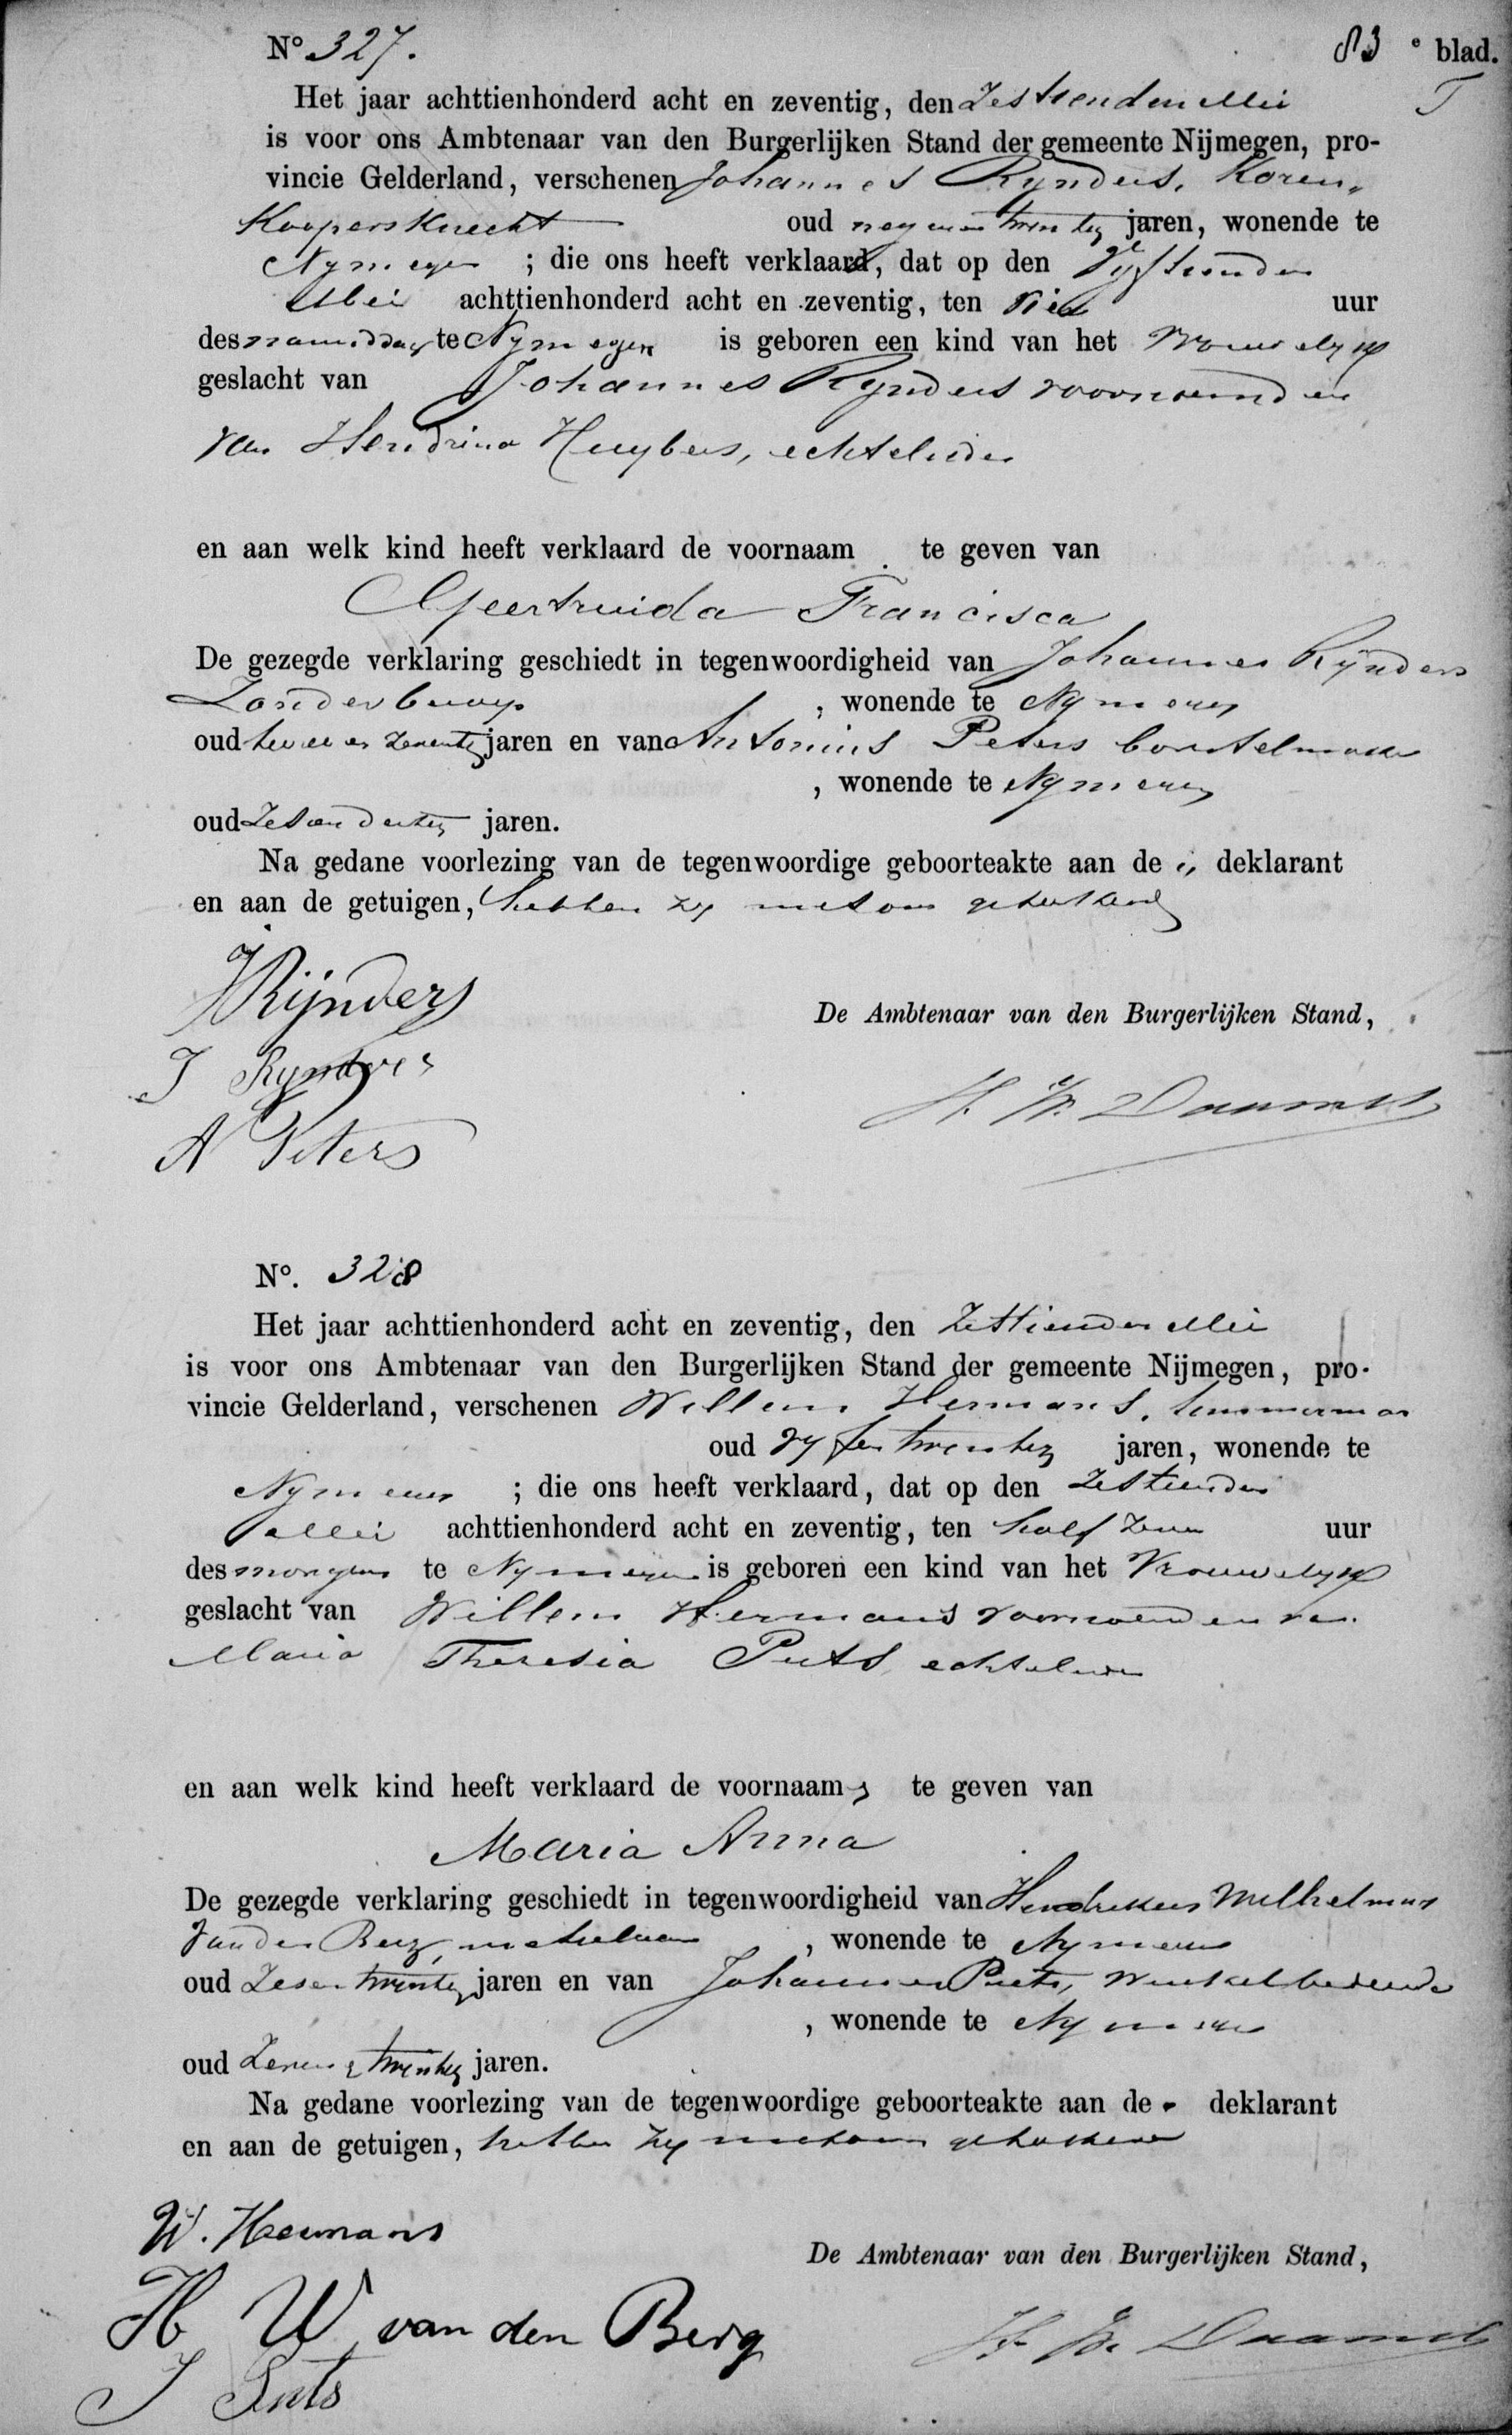 No 327. 83 e blad.
Het jaar achttienhonderd acht en zeventig, den Zestienden Mei T
is voor ons Ambtenaar van den Burgerlijken Stand der gemeente Nijmegen, pro-
vincie Gelderland, verschenen Johannes Rynders, Koren-
Koopersknecht oud negenentwintig jaren, wonende te
Nymegen ; die ons heeft verklaard, dat op den Vyftienden
Mei achttienhonderd acht en zeventig, ten vier uur
des namiddags te Nymegen is geboren een kind van het Vrouwelyk
geslacht van Johannes Rynders voornoemd en
van Hendrina Huybers, echtelieden
en aan welk kind heeft verklaard de voornaam te geven van
Geertruida Francisca
De gezegde verklaring geschiedt in tegenwoordigheid van Johannes Rijnders
Zonder beroep , wonende te Nymegen
oud twee en zeventig jaren en van Antonius Peters borstelmaker
, wonende te Nymegen
oud Zesendertig jaren.
Na gedane voorlezing van de tegenwoordige geboorteakte aan de deklarant
en aan de getuigen, hebben zy met ons geteekend
J Rijnders
De Ambtenaar van den Burgerlijken Stand,
J Rynders
A Peters
No. 328
Het jaar achttienhonderd acht en zeventig, den Zestienden Mei
is voor ons Ambtenaar van den Burgerlijken Stand der gemeente Nijmegen, pro-
vincie Gelderland, verschenen Willem Hermans, timmerman
oud vyfentwintig jaren, wonende te
Nymegen ; die ons heeft verklaard, dat op den Zestienden
Mei achttienhonderd acht en zeventig, ten half zeven uur
des morgens te Nymegen is geboren een kind van het Vrouwelyk
geslacht van Willem Hermans voornoemd en van
Maria Theresia Puts echtelieden
en aan welk kind heeft verklaard de voornaam s te geven van
Maria Anna
De gezegde verklaring geschiedt in tegenwoordigheid van Hendrikus Wilhelmus
van den Berg, metselaar , wonende te Nymegen
oud Zesentwintig jaren en van Johannes Puts, winkelbediende
, wonende te Nymegen
oud Zevenentwintig jaren.
Na gedane voorlezing van de tegenwoordige geboorteakte aan de deklarant
en aan de getuigen, hebben zy met ons geteekend
W. Hermans
De Ambtenaar van den Burgerlijken Stand,
H W van den Berg
J Puts